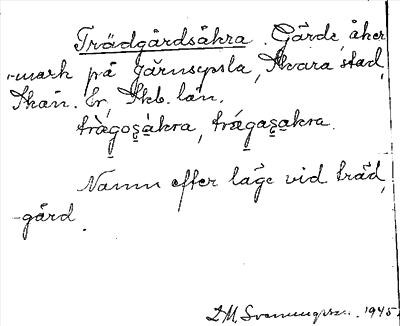 Trädgårdsåkra. Gärde, åker
-mark på Järnsysla, Skara stad,
Skån. hr, Skb. län.
trä̀go̱s̱à̱kra, trä́ga̱s̱a̱kra.
Namn efter läge vid träd,
-gård.
1945.